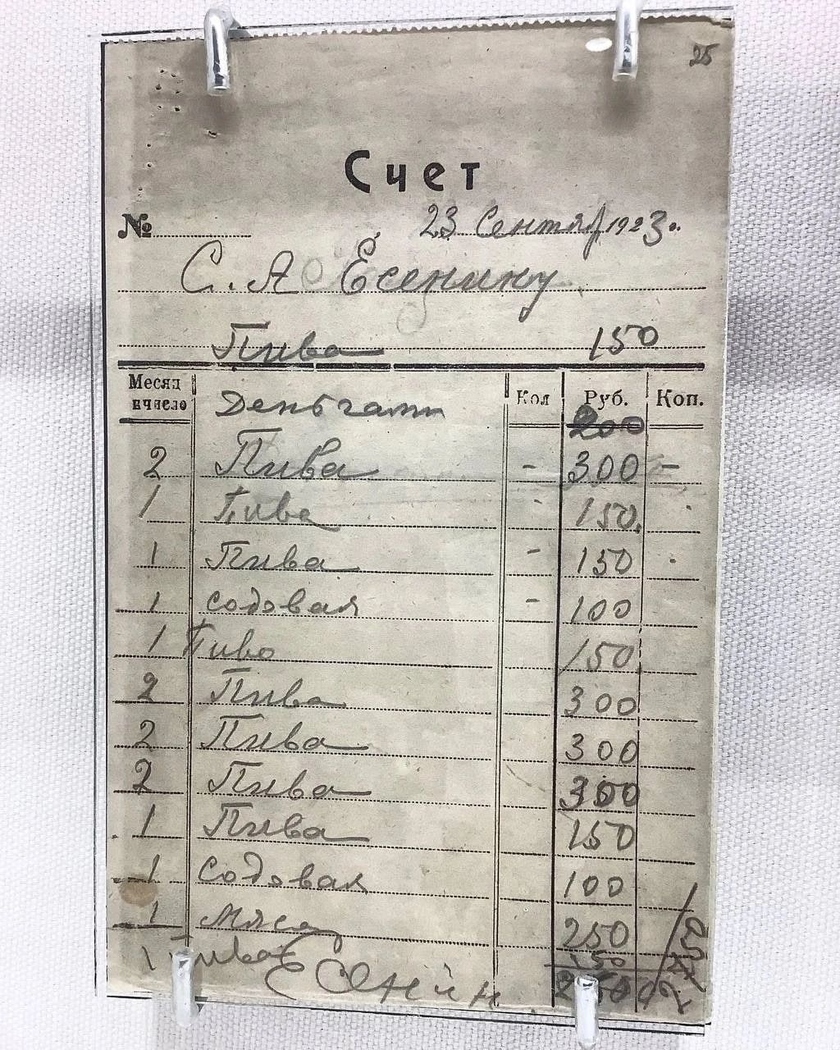 25
Счет
№ 23 Сентяб 1923 г.
С. А Есенину
Пива 150
Месяц и число Кол Руб. Коп.
Деньгами 200
2 Пива - 300 -
1 Пива - 150
1 Пива - 150
1 содовая - 100
1 Пиво 150
2 Пива 300
2 Пива 300
2 Пива 300
1 Пива 150
1 Содовая 100
1 Мясо 250
1 Пива 150
Есенин